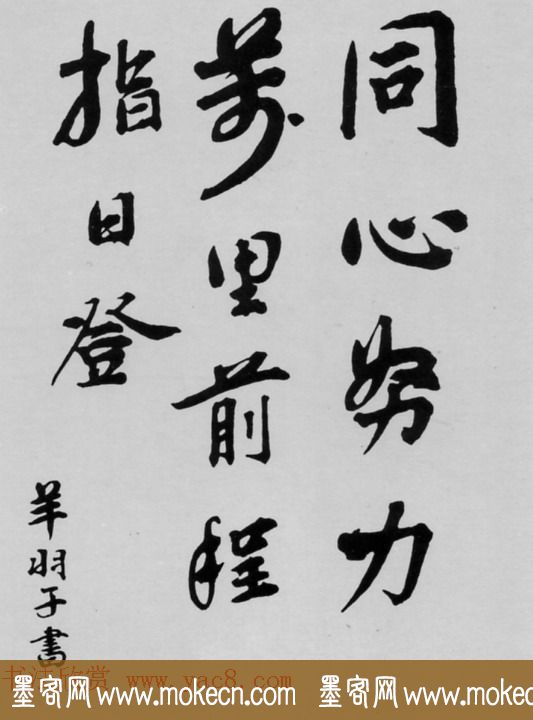 同心努力
萬里前程
指日登
羊羽子書
书法欣赏 www.yac8.com
墨客网 www.mokecn.com 墨客网 www.mokecn.com